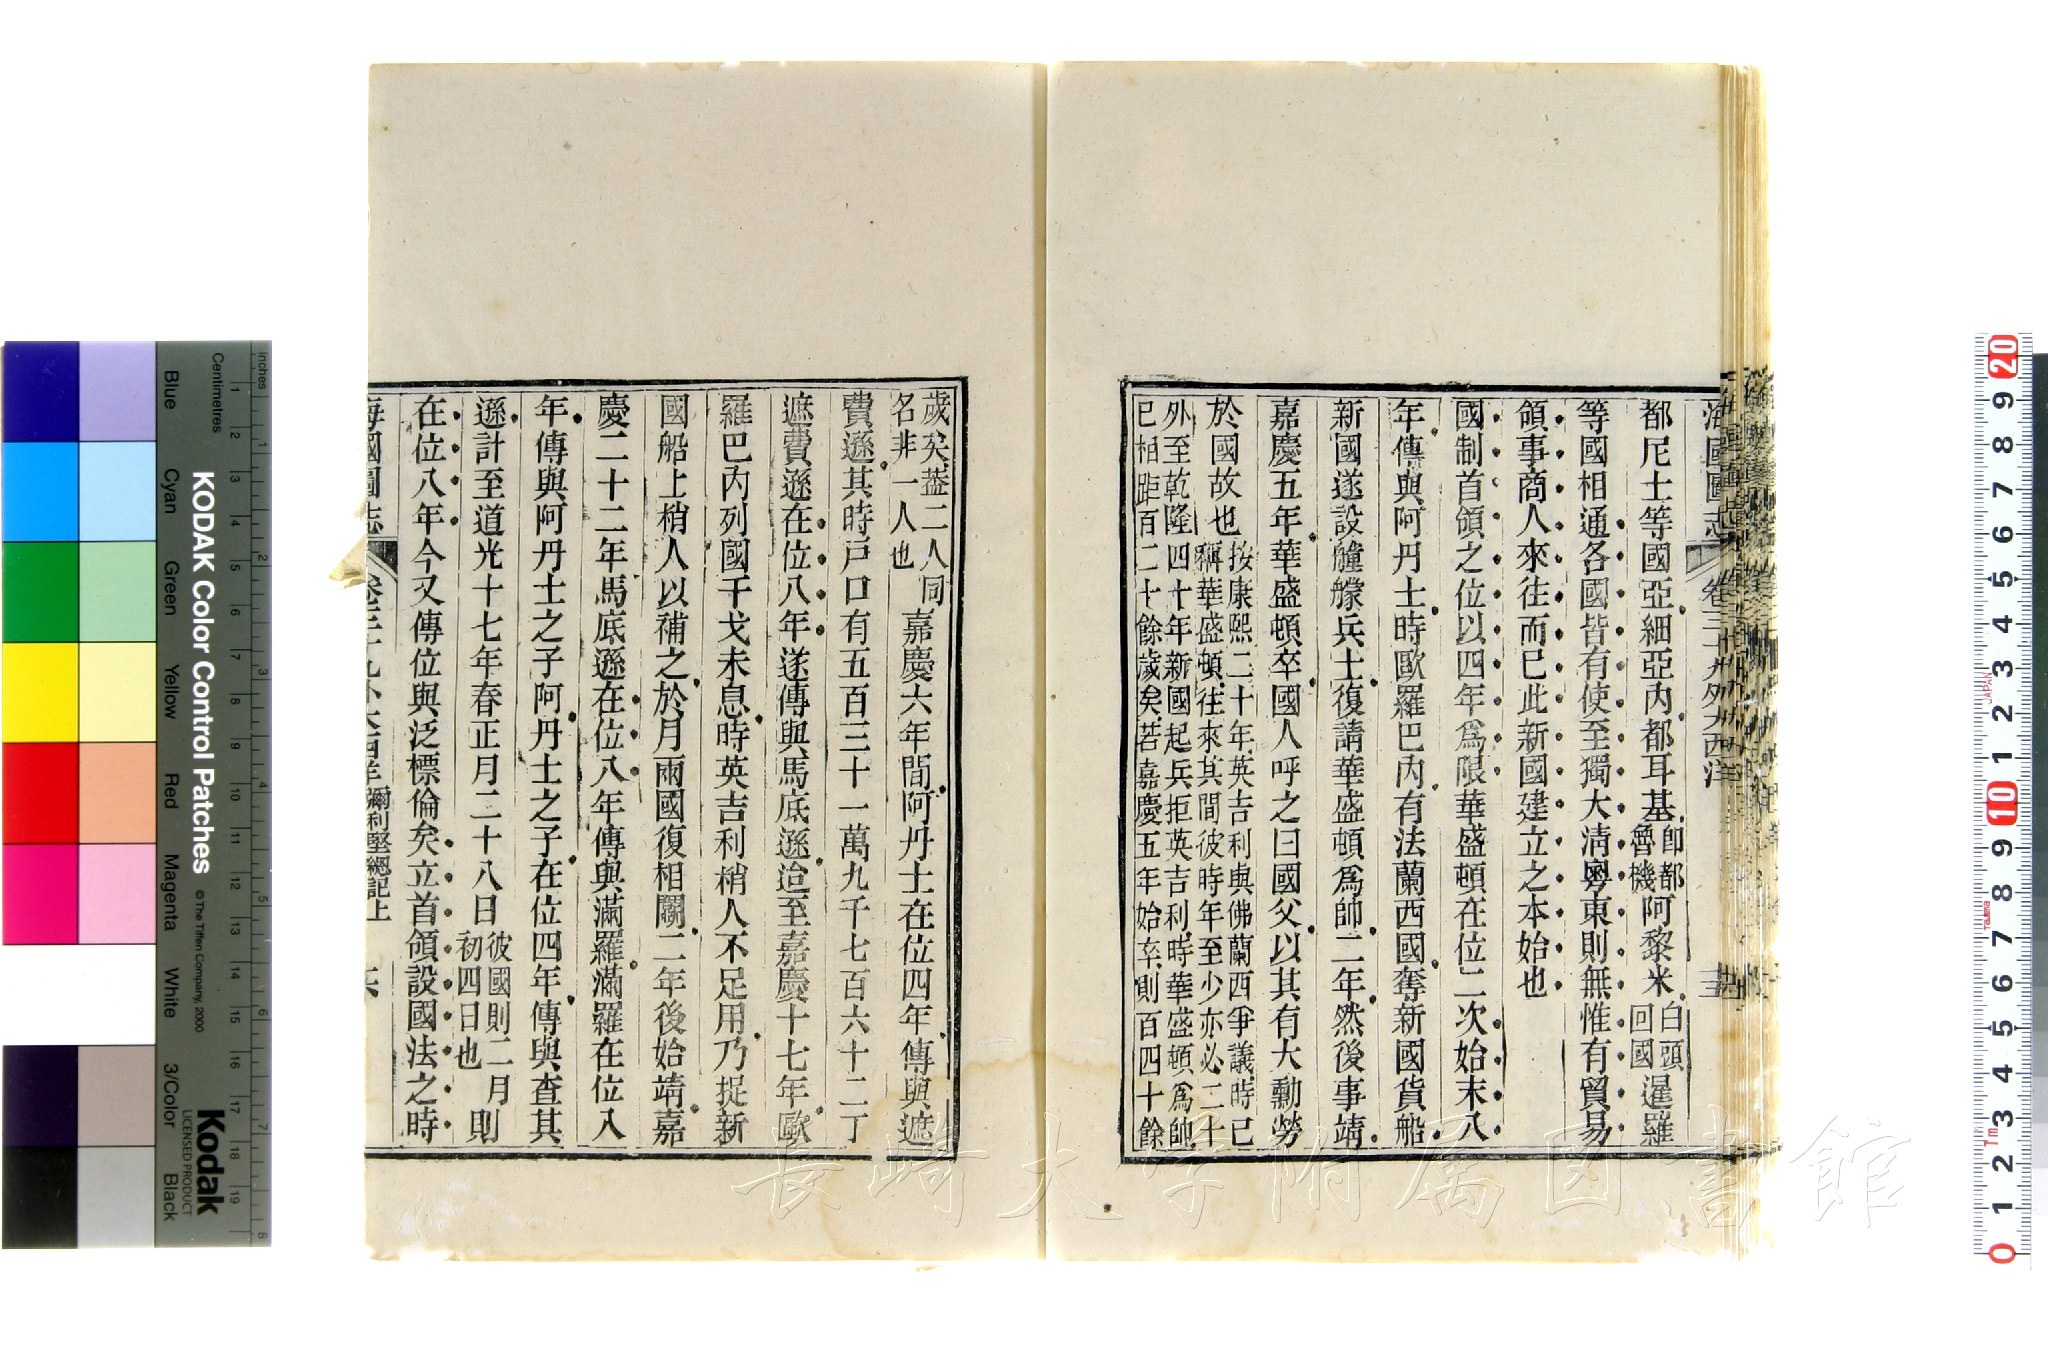 海國圖志 卷三十九外大西洋
都尼士等國亞細亞內都耳基卽都魯機阿黎米白頭回國暹羅
等國相通各國皆有使至獨大淸粵東則無惟有貿易
領事商人來往而已此新國建立之本始也
國制首領之位以四年爲限華盛頓在位二次始末八
年傳與阿丹士時歐羅巴內有法蘭西國奪新國貨船
新國遂設艟艨兵士復請華盛頓爲帥二年然後事靖
嘉慶五年華盛頓卒國人呼之曰國父以其有大勳勞
於國故也按康熙二十年英吉利與佛蘭西爭議時已
稱華盛頓往來其間彼時年至少亦必二十
外至乾隆四十年新國起兵拒英吉利時華盛頓爲帥
已相距百二十餘歲矣若嘉慶五年始卒則百四十餘
歲矣葢二人同
名非一人也嘉慶六年間阿丹士在位四年傳與遮
費遜其時戸口有五百三十一萬九千七百六十二丁
遮費遜在位八年遂傳與馬底遜迨至嘉慶十七年歐
羅巴內列國干戈未息時英吉利梢人不足用乃捉新
國船上梢人以補之於月兩國復相關二年後始靖嘉
慶二十二年馬底遜在位八年傳與滿羅滿羅在位八
年傳與阿丹士之子阿丹士之子在位四年傳與查其
遜計至道光十七年春正月二十八日彼國則二月初四日也則
在位八年今又傳位與泛標倫矣立首領設國法之時
海國圖志 卷三十九外大西洋 彌利堅總記上
KODAK Color Control Patches
© The Tiffen Company, 2000
Kodak
LICENSED PRODUCT
Centimetres
Inches
Blue
Cyan
Green
Yellow
Red
Magenta
White
3/Color
Black
1 2 3 4 5 6 7 8 9 10 11 12 13 14 15 16 17 18 19
1 2 3 4 5 6 7 8
20 9 8 7 6 5 4 3 2 1 10 9 8 7 6 5 4 3 2 1 0
JAPAN
Tajima
長崎大学附属図書館